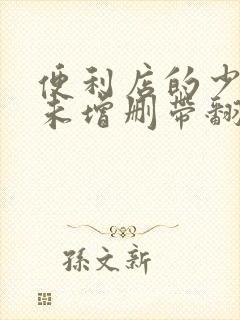 便利店的少
未增删带翻
孫文新